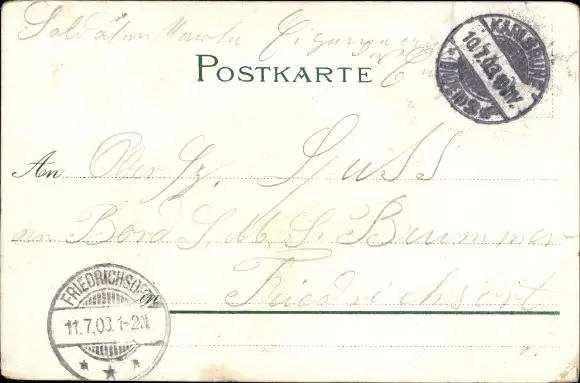 Soldaten Karte Eigene
POSTKARTE
KARLSRUHE
10.7.03
(BADEN)
An Ober Hz. Guss
an Bord S. M. S. Brummer
Friedrichsort
FRIEDRICHSORT
11.7.03.1-2N